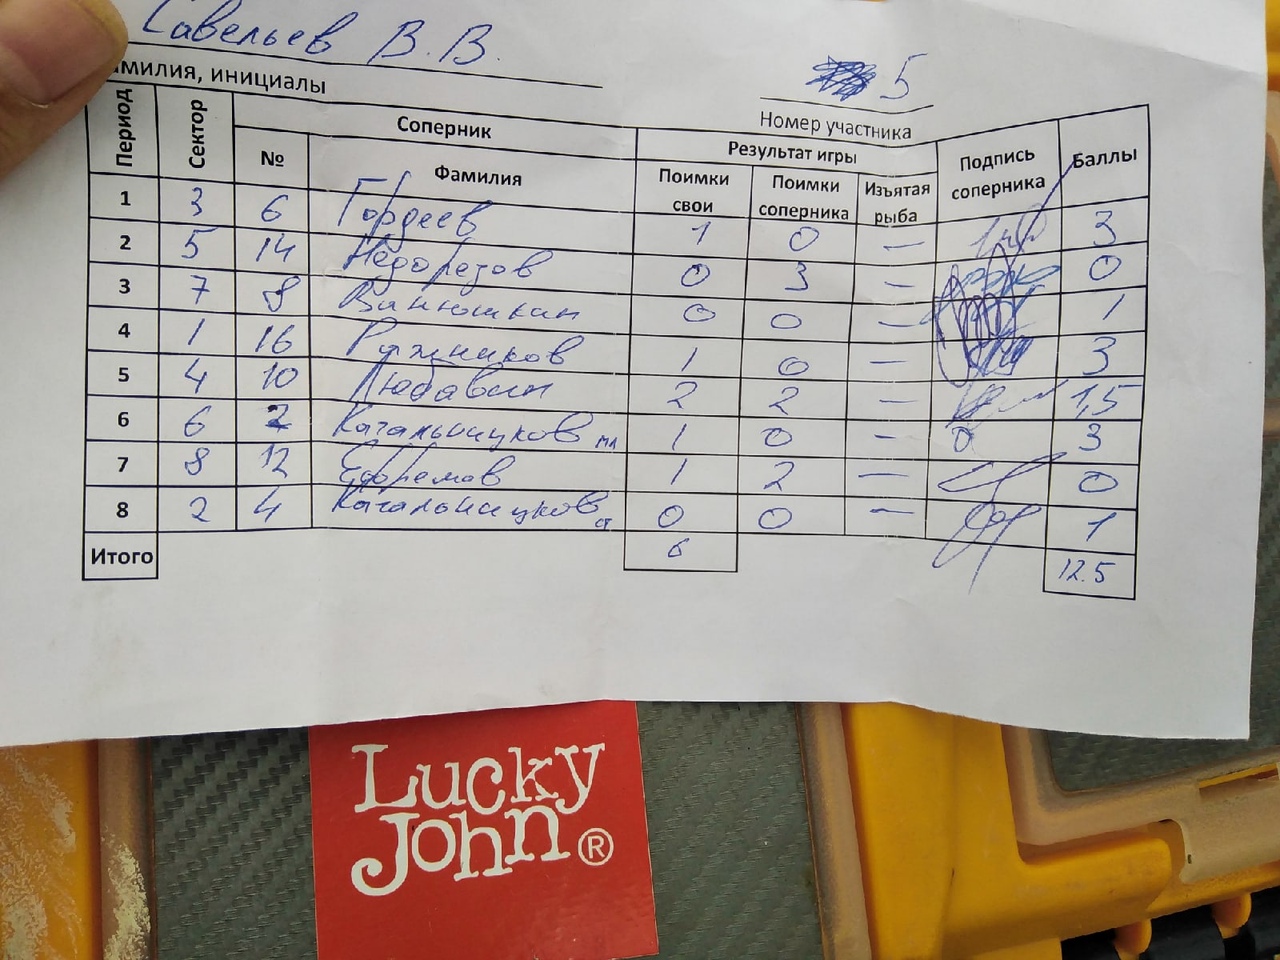 Савельев В.В.
амилия, инициалы
5
Номер участника
Период Сектор Соперник Результат игры Подпись соперника Баллы
№ Фамилия Поимки свои Поимки соперника Изъятая рыба
1 3 6 Гордеев 1 0 — 3
2 5 14 Недорезов 0 3 — 0
3 7 8 Ванюшкин 0 0 — 1
4 1 16 1 0 — 3
5 4 10 Любавин 2 2 — 1,5
6 6 2 Качальницков мл 1 0 - 3
7 8 12 Ефремов 1 2 — 0
8 2 4 Качальницков ст 0 0 — 1
Итого 6 12.5
Lucky
John ®